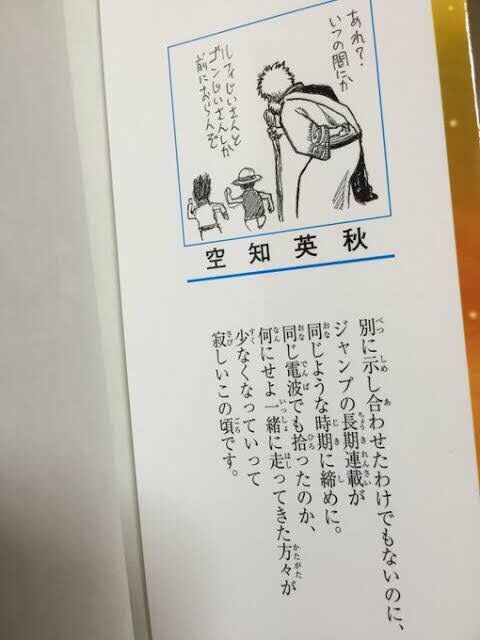 あれ?
いつの間にか
ルフィじいさんと
ゴンじいさんしか
前におらんぞ
空知英秋
別に示し合わせたわけでもないのに、
ジャンプの長期連載が
同じような時期に締めに。
同じ電波でも拾ったのか、
何にせよ一緒に走ってきた方々が
少なくなっていって
寂しいこの頃です。